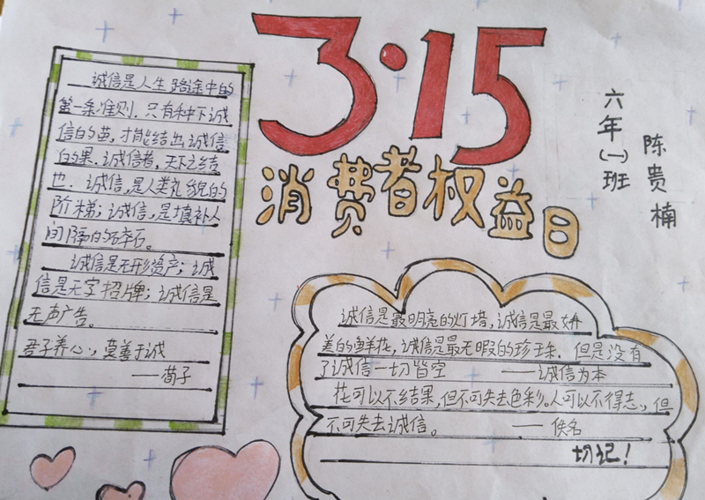 3·15
消费者权益日
六年(一)班
陈贵楠
诚信是人生路途中的
第一条准则，只有种下诚
信的苗，才能结出诚信
的果，诚信者，天下之结
也．诚信，是人类礼貌的
阶梯；诚信，是填补人
间隙的碎石。
诚信是无形资产；诚
信是无字招牌；诚信是
无声广告。
君子养心，莫善于诚
——荀子
诚信是最明亮的灯塔，诚信是最
美的鲜花，诚信是最无暇的珍珠．但是没有
了诚信一切皆空 ——诚信为本
花可以不结果，但不可失去色彩。人可以不得志，但
不可失去诚信。 ——佚名
切记！